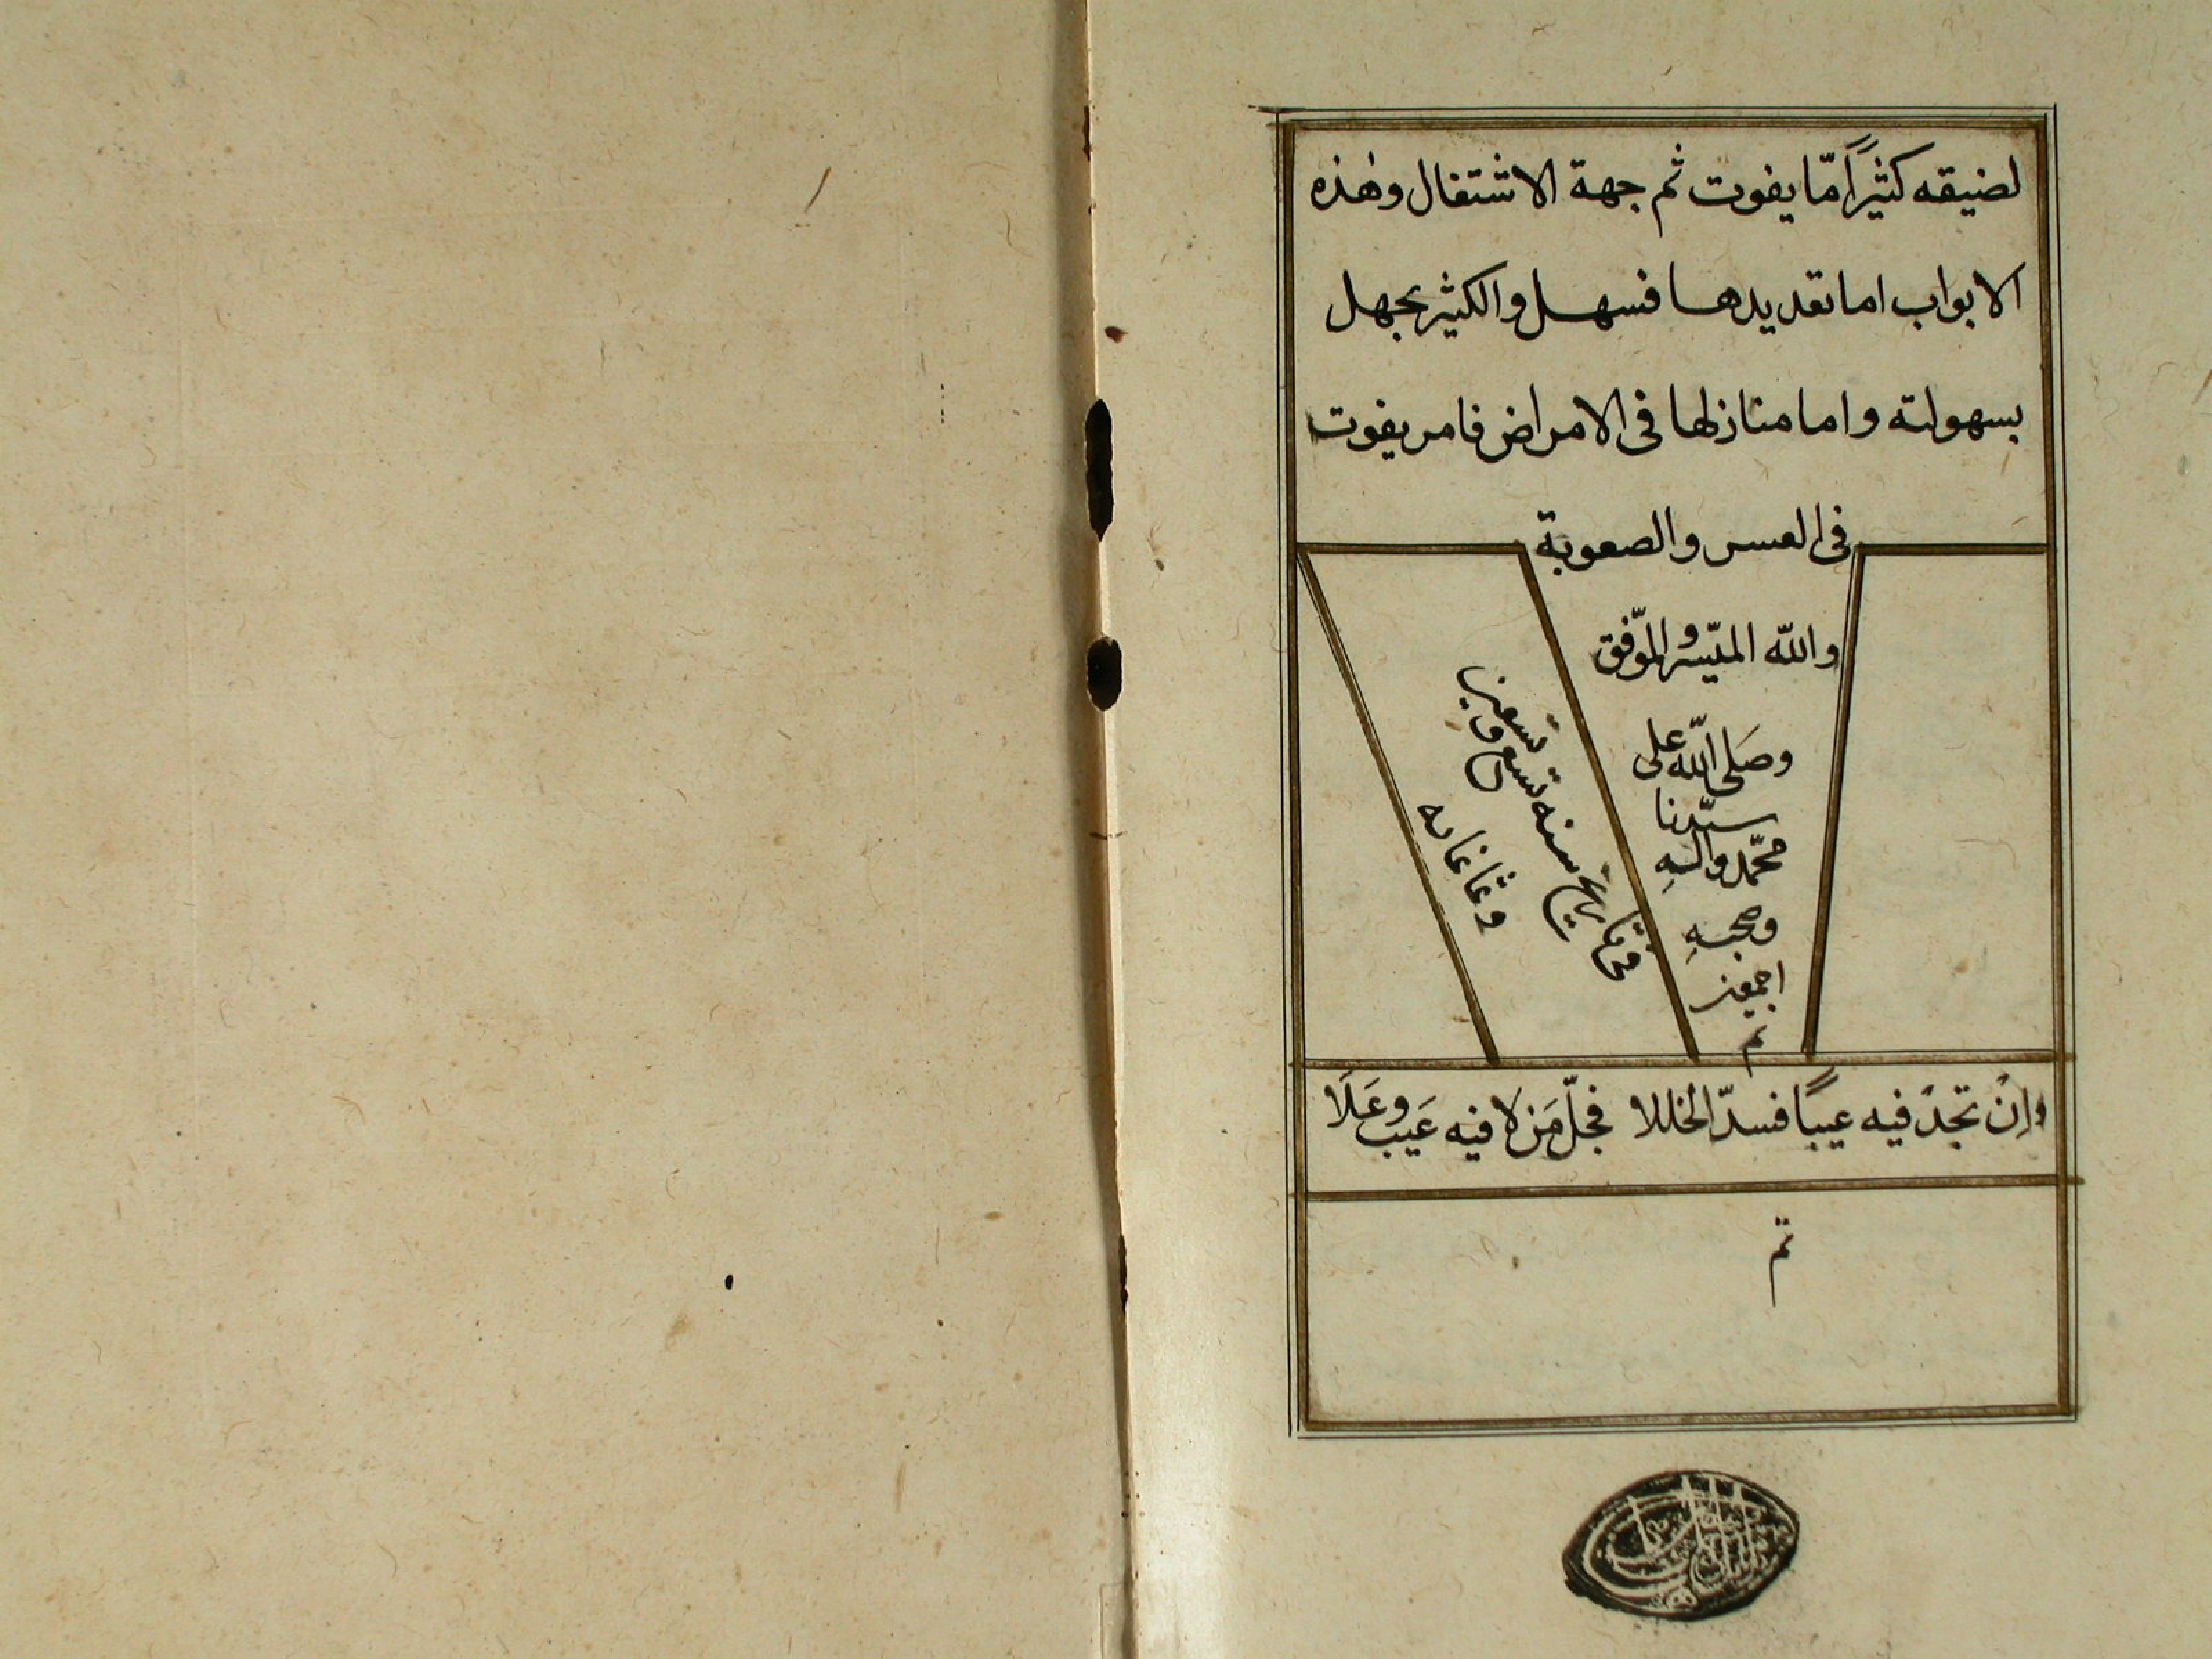 لضيقه كثيراً مّا يفوت ثم جهة الاشتغال وهٰذه
الابواب اما تقديدها فسهل والكثير يجهل
بسهولته واما منازلها فى الامراض فامر يفوت
فى العسر والصعوبة
والله الميّسر والموّفق
وصَلى اللّه على
سيّدنا
محمّد والهِ
وصحبهِ
اجمعين
تم
فى تاريخ سنه تسع وتسعين
وثمانمايه
وإنْ تجدْ فيه عيبًا فسدّ الخللا فجلّ مَن لا فيه عَيب وعَلَا
تم